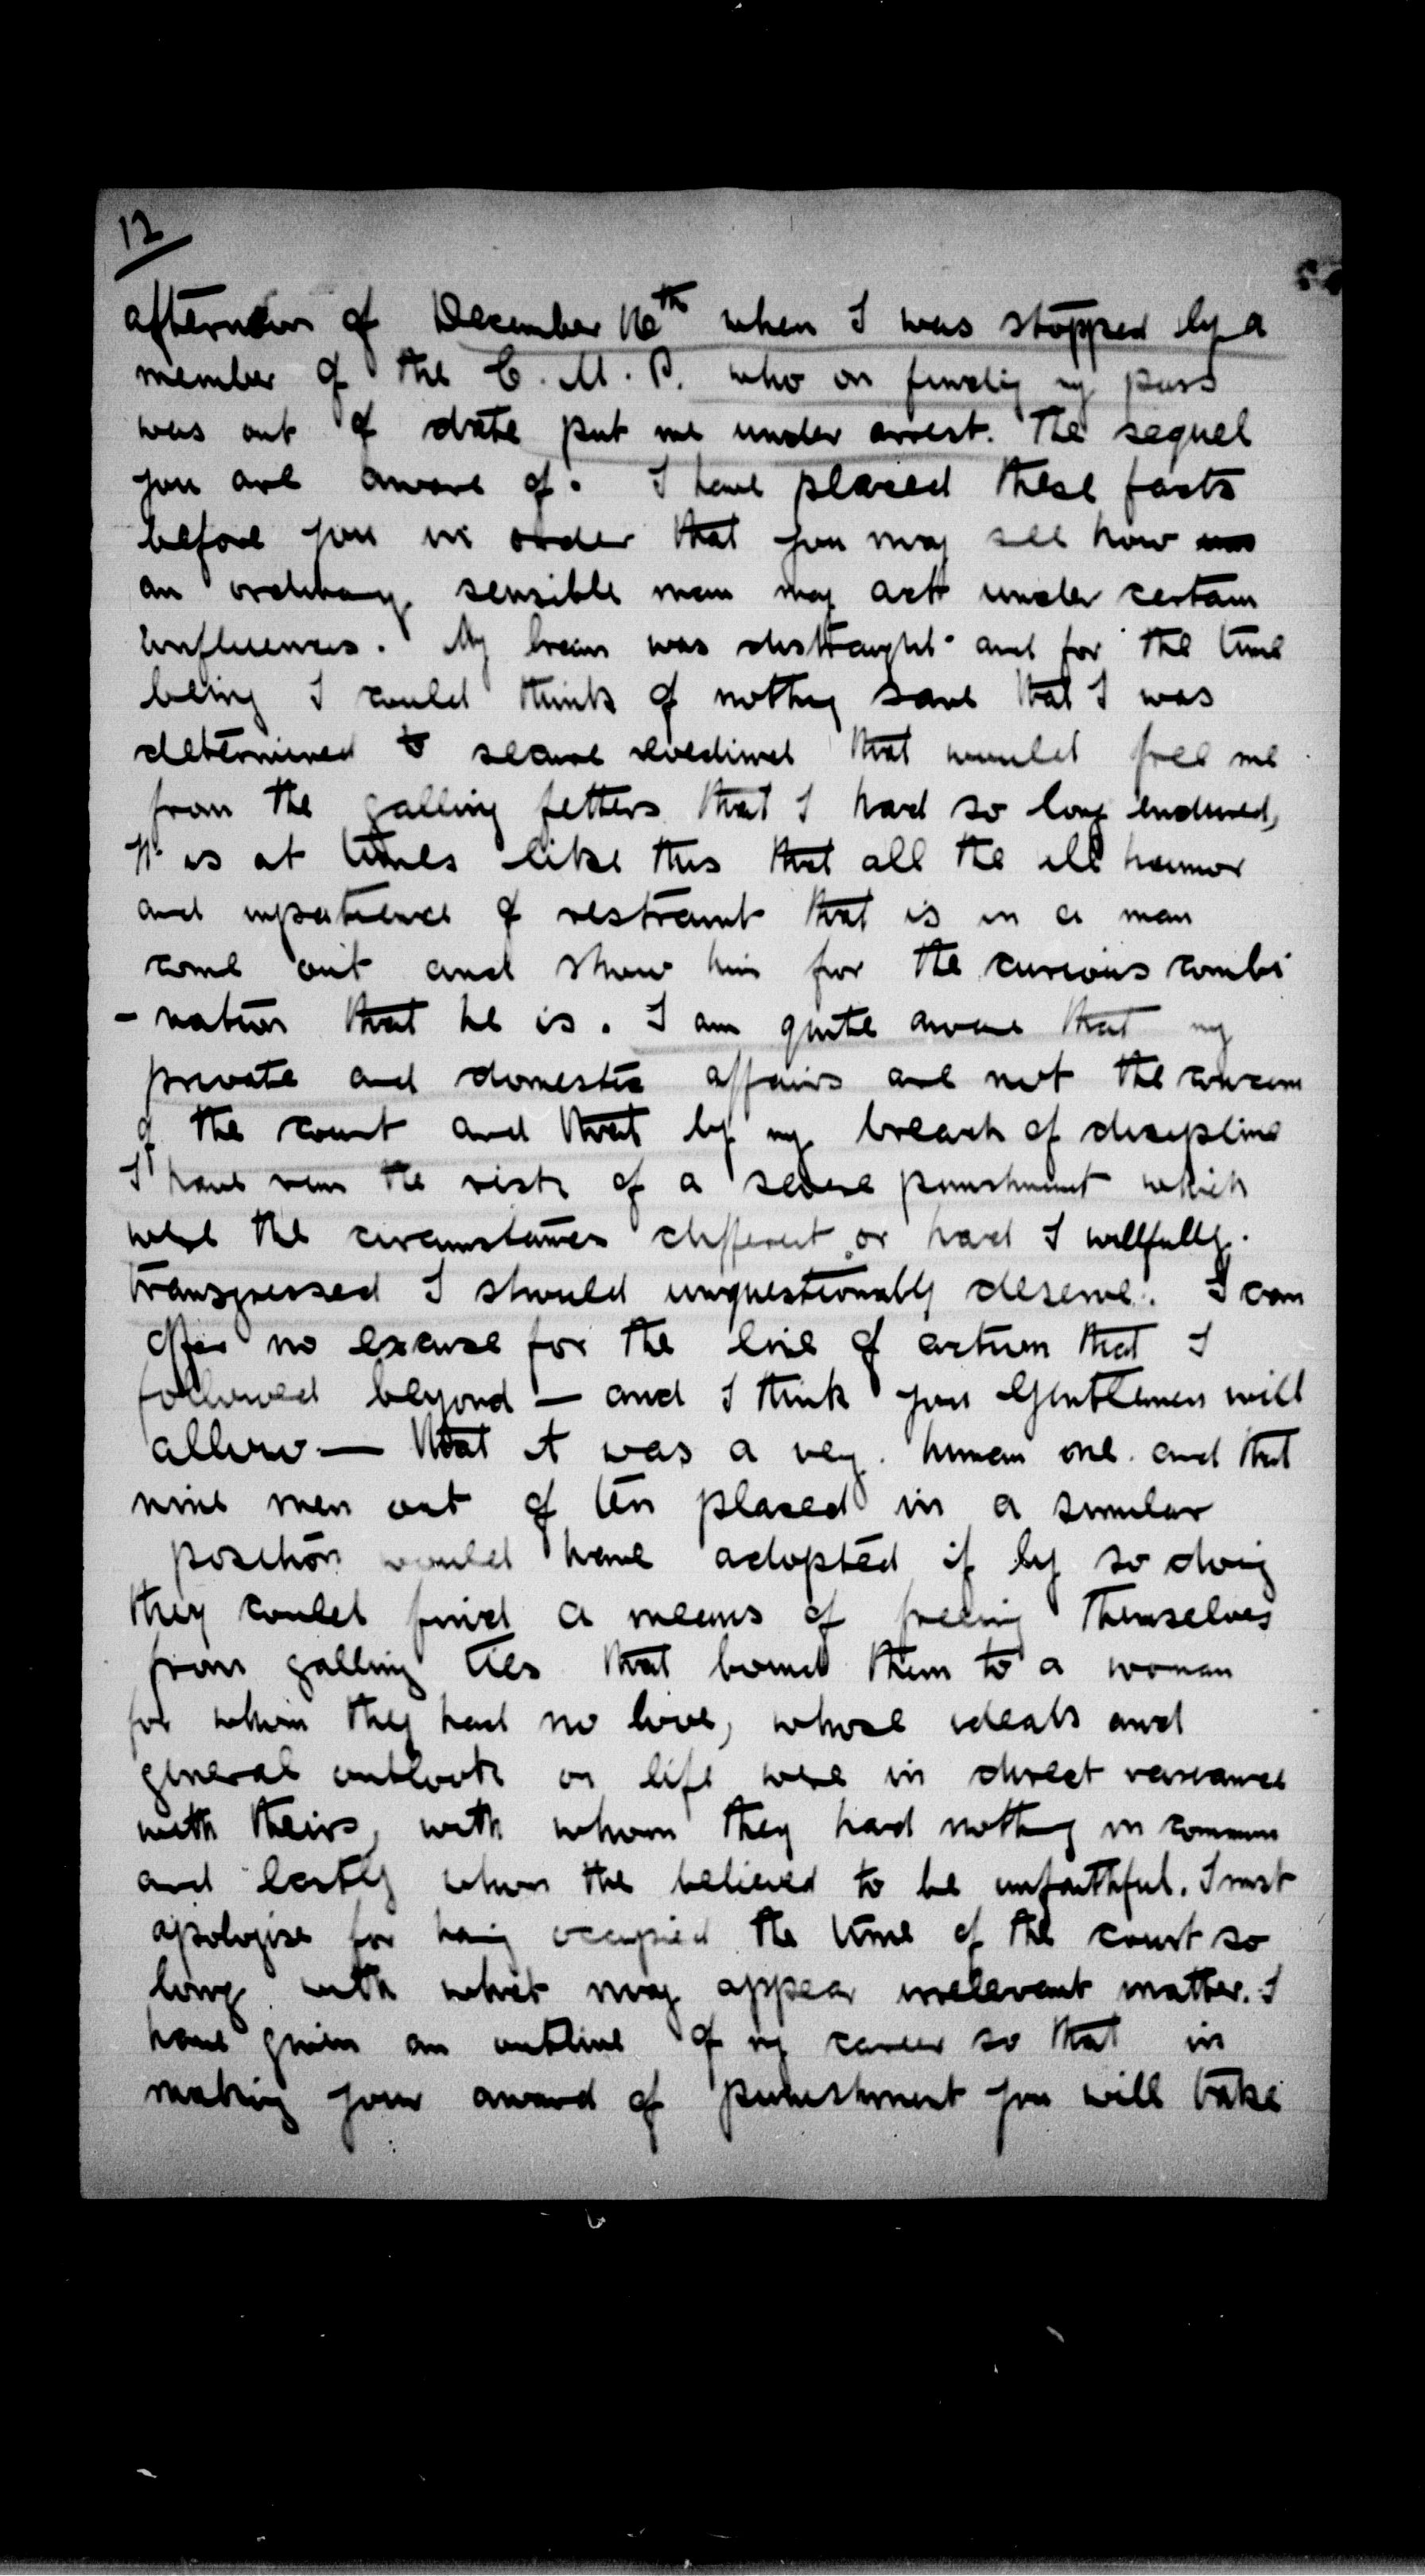 12
afternoon of December 16th when I was stopped by a
member of the C.M.P. who on finding my pass
was out of date put me under arrest. The sequel
you are aware of. I have placed these facts
before you in order that you may see how
an ordinary sensible man may act under certain
influences. My brain was distraught and for the time
being I could think of nothing save that I was
determined to secure evidence that would free me
from the galling fetters that I had so long endured,
It is at times like this that all the ill humor
and impatience of restraint that is in a man
come out and show him for the curious combi
-nation that he is. I am quite aware that my
private and domestic affairs are not the concern
of the court and that by my breach of discipline
I have run the risk of a severe punishment which
were the circumstances different or had I willfully
transgressed I should unquestionably deserve. I can
offer no excuse for the line of action that I
followed beyond — and I think you Gentlemen will
allow — that it was a very human one and that
nine men out of ten placed in a similar
position would have adopted if by so doing
they could find a means of freeing themselves
from galling ties that bound them to a woman
for whom they had no love, whose ideals and
general outlook on life were in direct variance
with theirs, with whom they had nothing in common
and lastly whom the believed to be unfaithful. I must
apologise for having occupied the time of the court so
long with what may appear irrelevant matter. I
have given an outline of my career so that in
making your award of punishment you will take